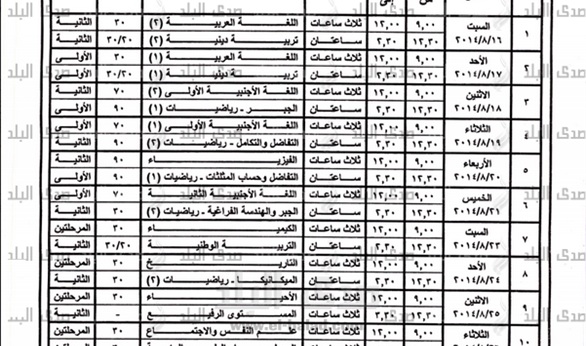 من إلى
١ السبت ٢٠١٤/٨/١٦ ٩,٠٠ ١٢,٠٠ ثلاث ساعات اللغة العربية (٢) ٣٠ الثانية
١٢,٣٠ ٢,٣٠ ساعتان تربية دينية (٢) ٣٠/٢٠ الثانية
٢ الأحد ٢٠١٤/٨/١٧ ٩,٠٠ ١٢,٠٠ ثلاث ساعات اللغة العربية (١) ٣٠ الأولى
١٢,٣٠ ٢,٣٠ ساعتان تربية دينية (١) ٣٠/٢٠ الأولى
٣ الاثنين ٢٠١٤/٨/١٨ ٩,٠٠ ١٢,٠٠ ثلاث ساعات اللغة الأجنبية الأولى (٢) ٧٠ الثانية
١٢,٣٠ ٢,٣٠ ساعتان الجبر - رياضيات (١) ٩٠ الأولى
٤ الثلاثاء ٢٠١٤/٨/١٩ ٩,٠٠ ١٢,٠٠ ثلاث ساعات اللغة الأجنبية الأولى (١) ٧٠ الأولى
١٢,٣٠ ٢,٣٠ ساعتان التفاضل والتكامل - رياضيات (٢) ٩٠ الثانية
٥ الأربعاء ٢٠١٤/٨/٢٠ ٩,٠٠ ١٢,٠٠ ثلاث ساعات الفيزياء ٩٠ الثانية
١٢,٣٠ ٢,٣٠ ساعتان التفاضل وحساب المثلثات - رياضيات (١) ٩٠ الأولى
٦ الخميس ٢٠١٤/٨/٢١ ٩,٠٠ ١٢,٠٠ ثلاث ساعات اللغة الأجنبية الثانية ٧٠ الأولى
١٢,٣٠ ٢,٣٠ ساعتان الجبر والهندسة الفراغية - رياضيات (٢) ٣٠ الثانية
٧ السبت ٢٠١٤/٨/٢٣ ٩,٠٠ ١٢,٠٠ ثلاث ساعات الكيمياء ٣٠ المرحلتين
١٢,٣٠ ٢,٣٠ ساعتان التربية الوطنية ٣٠/٢٠ الثانية
٨ الأحد ٢٠١٤/٨/٢٤ ٩,٠٠ ١٢,٠٠ ثلاث ساعات التاريخ ٣٠ المرحلتين
١٢,٣٠ ٢,٣٠ ساعتان الميكانيكا - رياضيات (٢) ٣٠ الثانية
٩ الاثنين ٢٠١٤/٨/٢٥ ٩,٠٠ ١٢,٠٠ ثلاث ساعات الأحياء ٣٠ المرحلتين
١٢,٣٠ ٣,٣٠ ثلاث ساعات المستوى الرفيع - الثانية
١٠ الثلاثاء ٩,٠٠ ١٢,٠٠ ثلاث ساعات علم النفس والاجتماع ٣٠ المرحلتين
صدى البلد